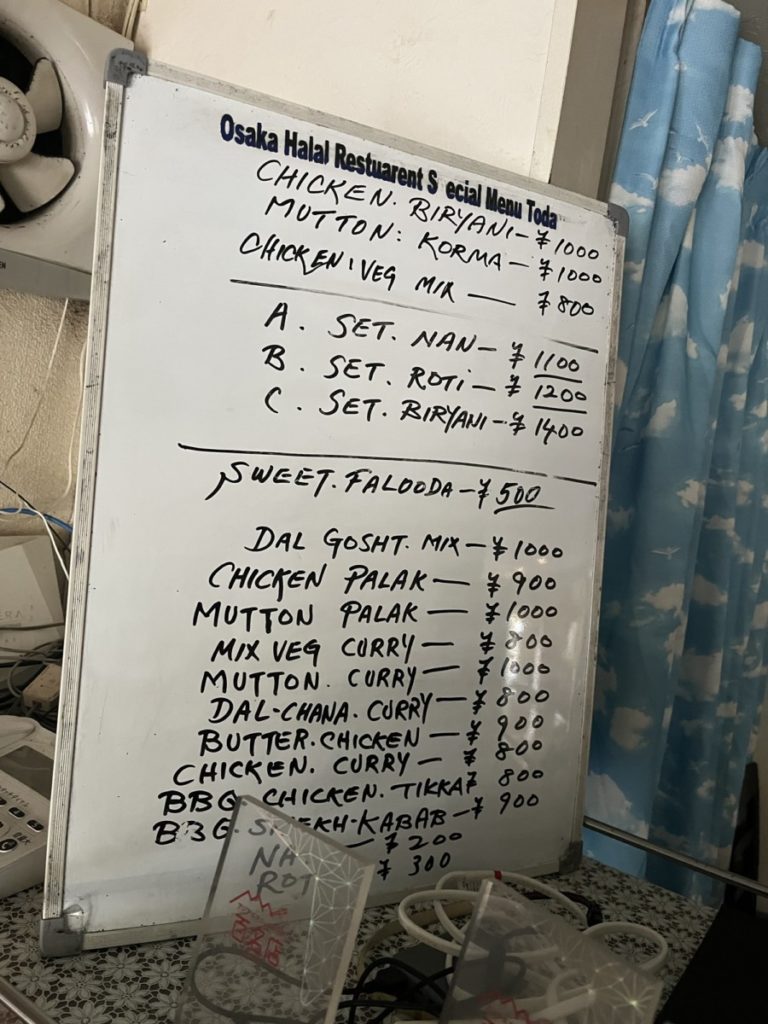 Osaka Halal Restuarent S ecial Menu Toda
CHICKEN. BIRYANI - ¥ 1000
MUTTON: KORMA - ¥ 1000
CHICKEN: VEG MIX - ¥ 800
A. SET. NAN - ¥ 1100
B. SET. ROTI - ¥ 1200
C. SET. BIRYANI - ¥ 1400
SWEET. FALOODA - ¥ 500
DAL GOSHT. MIX - ¥ 1000
CHICKEN PALAK - ¥ 900
MUTTON PALAK - ¥ 1000
MIX VEG CURRY - ¥ 800
MUTTON. CURRY - ¥ 1000
DAL-CHANA. CURRY - ¥ 800
BUTTER. CHICKEN - ¥ 900
CHICKEN. CURRY - ¥ 800
BBQ. CHICKEN. TIKKA ¥ 800
BBQ. SHEEKH-KABAB - ¥ 900
NA - ¥ 200
ROT ¥ 300